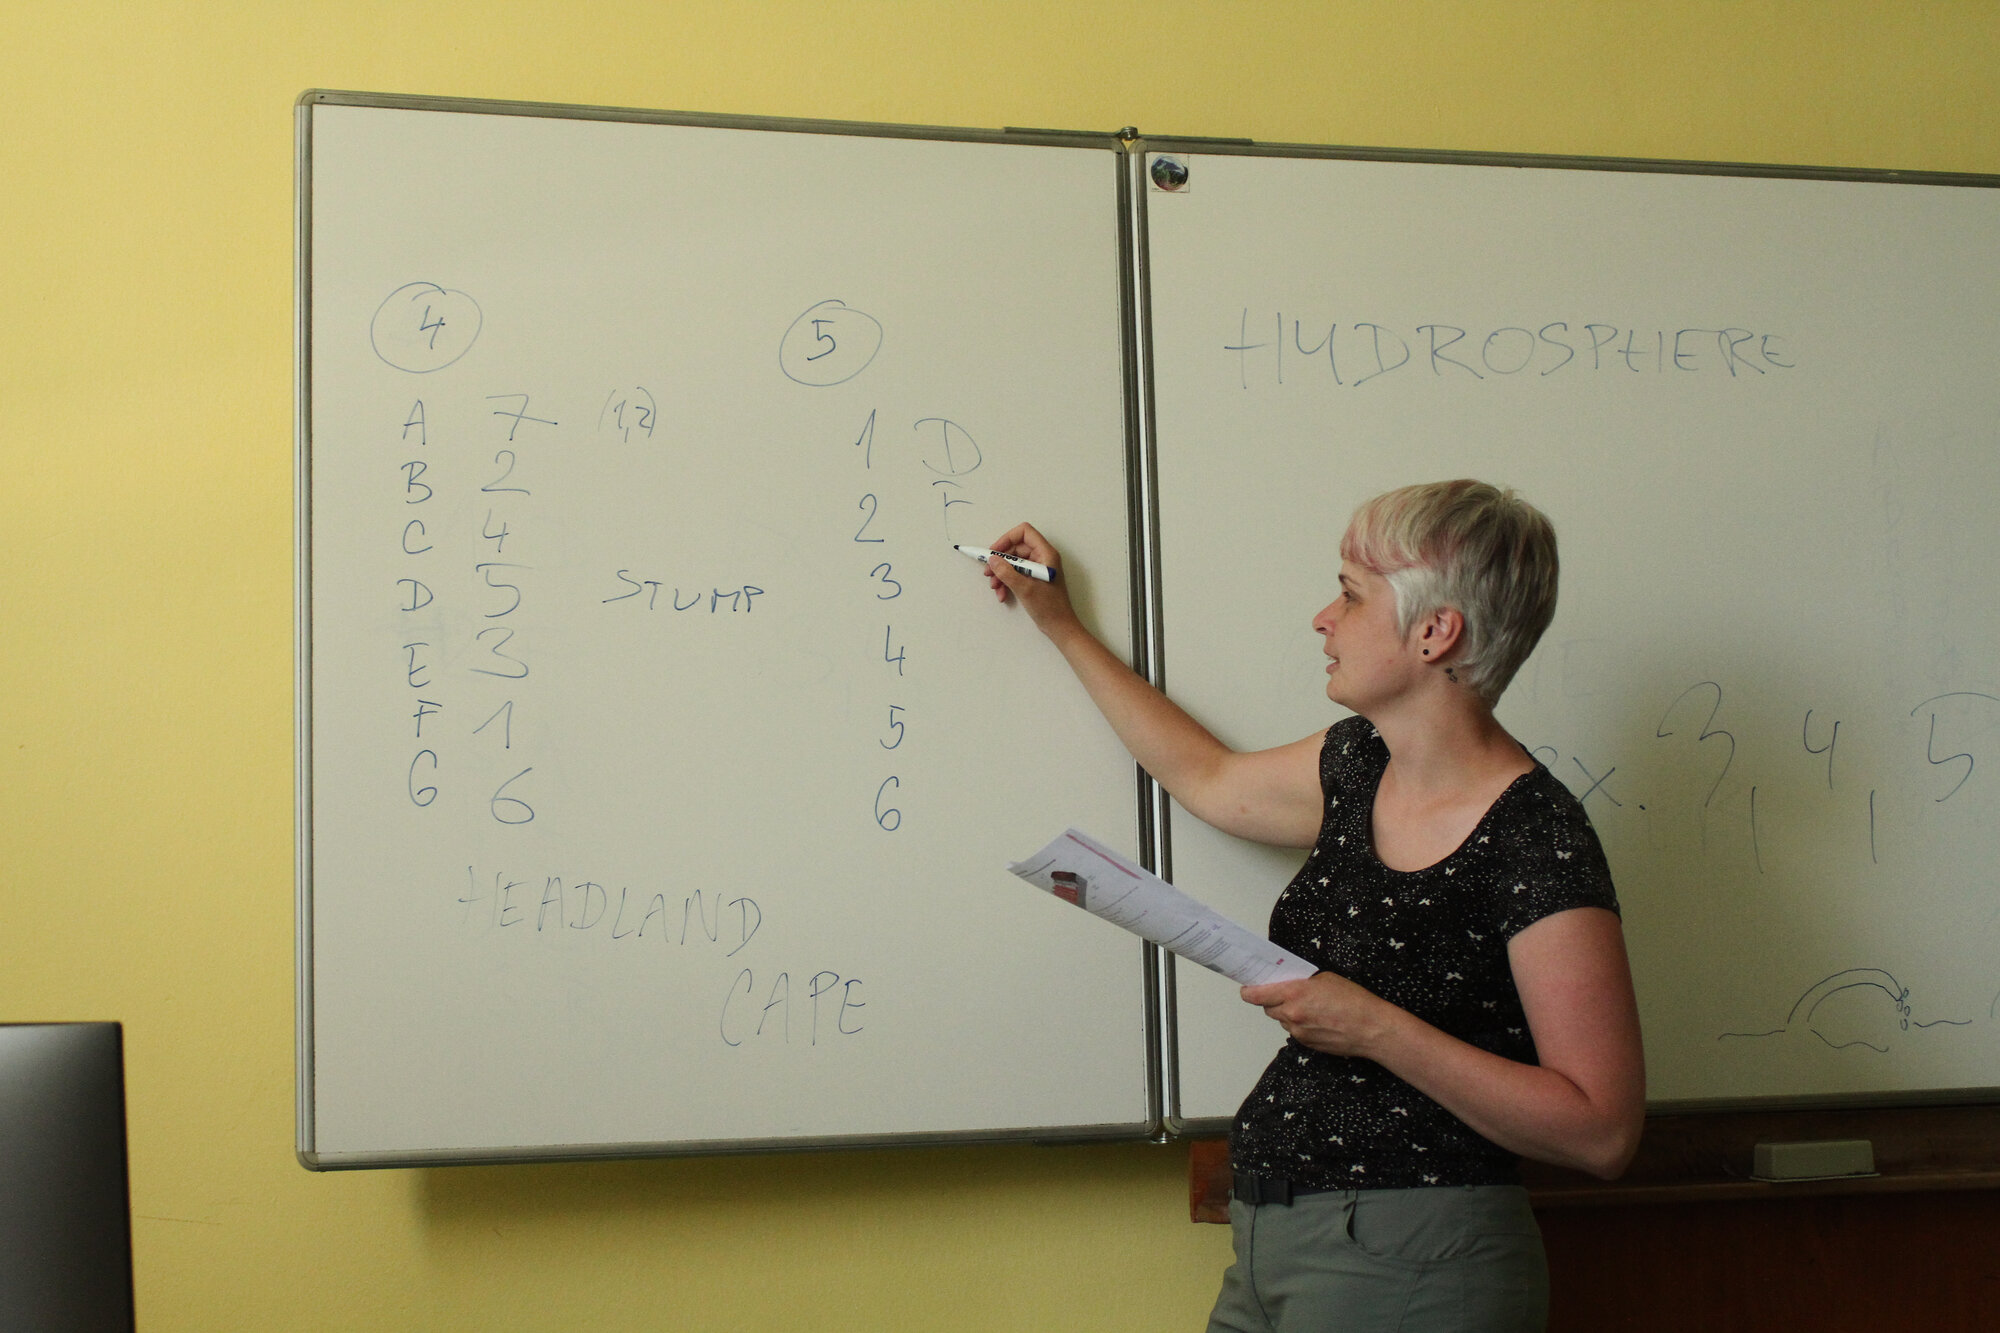 4
A 7 (1,2)
B 2
C 4
D 5 STUMP
E 3
F 1
G 6
HEADLAND
CAPE
5
1 D
2 F
3
4
5
6
HYDROSPHERE
ex. 3, 4, 5
Kores